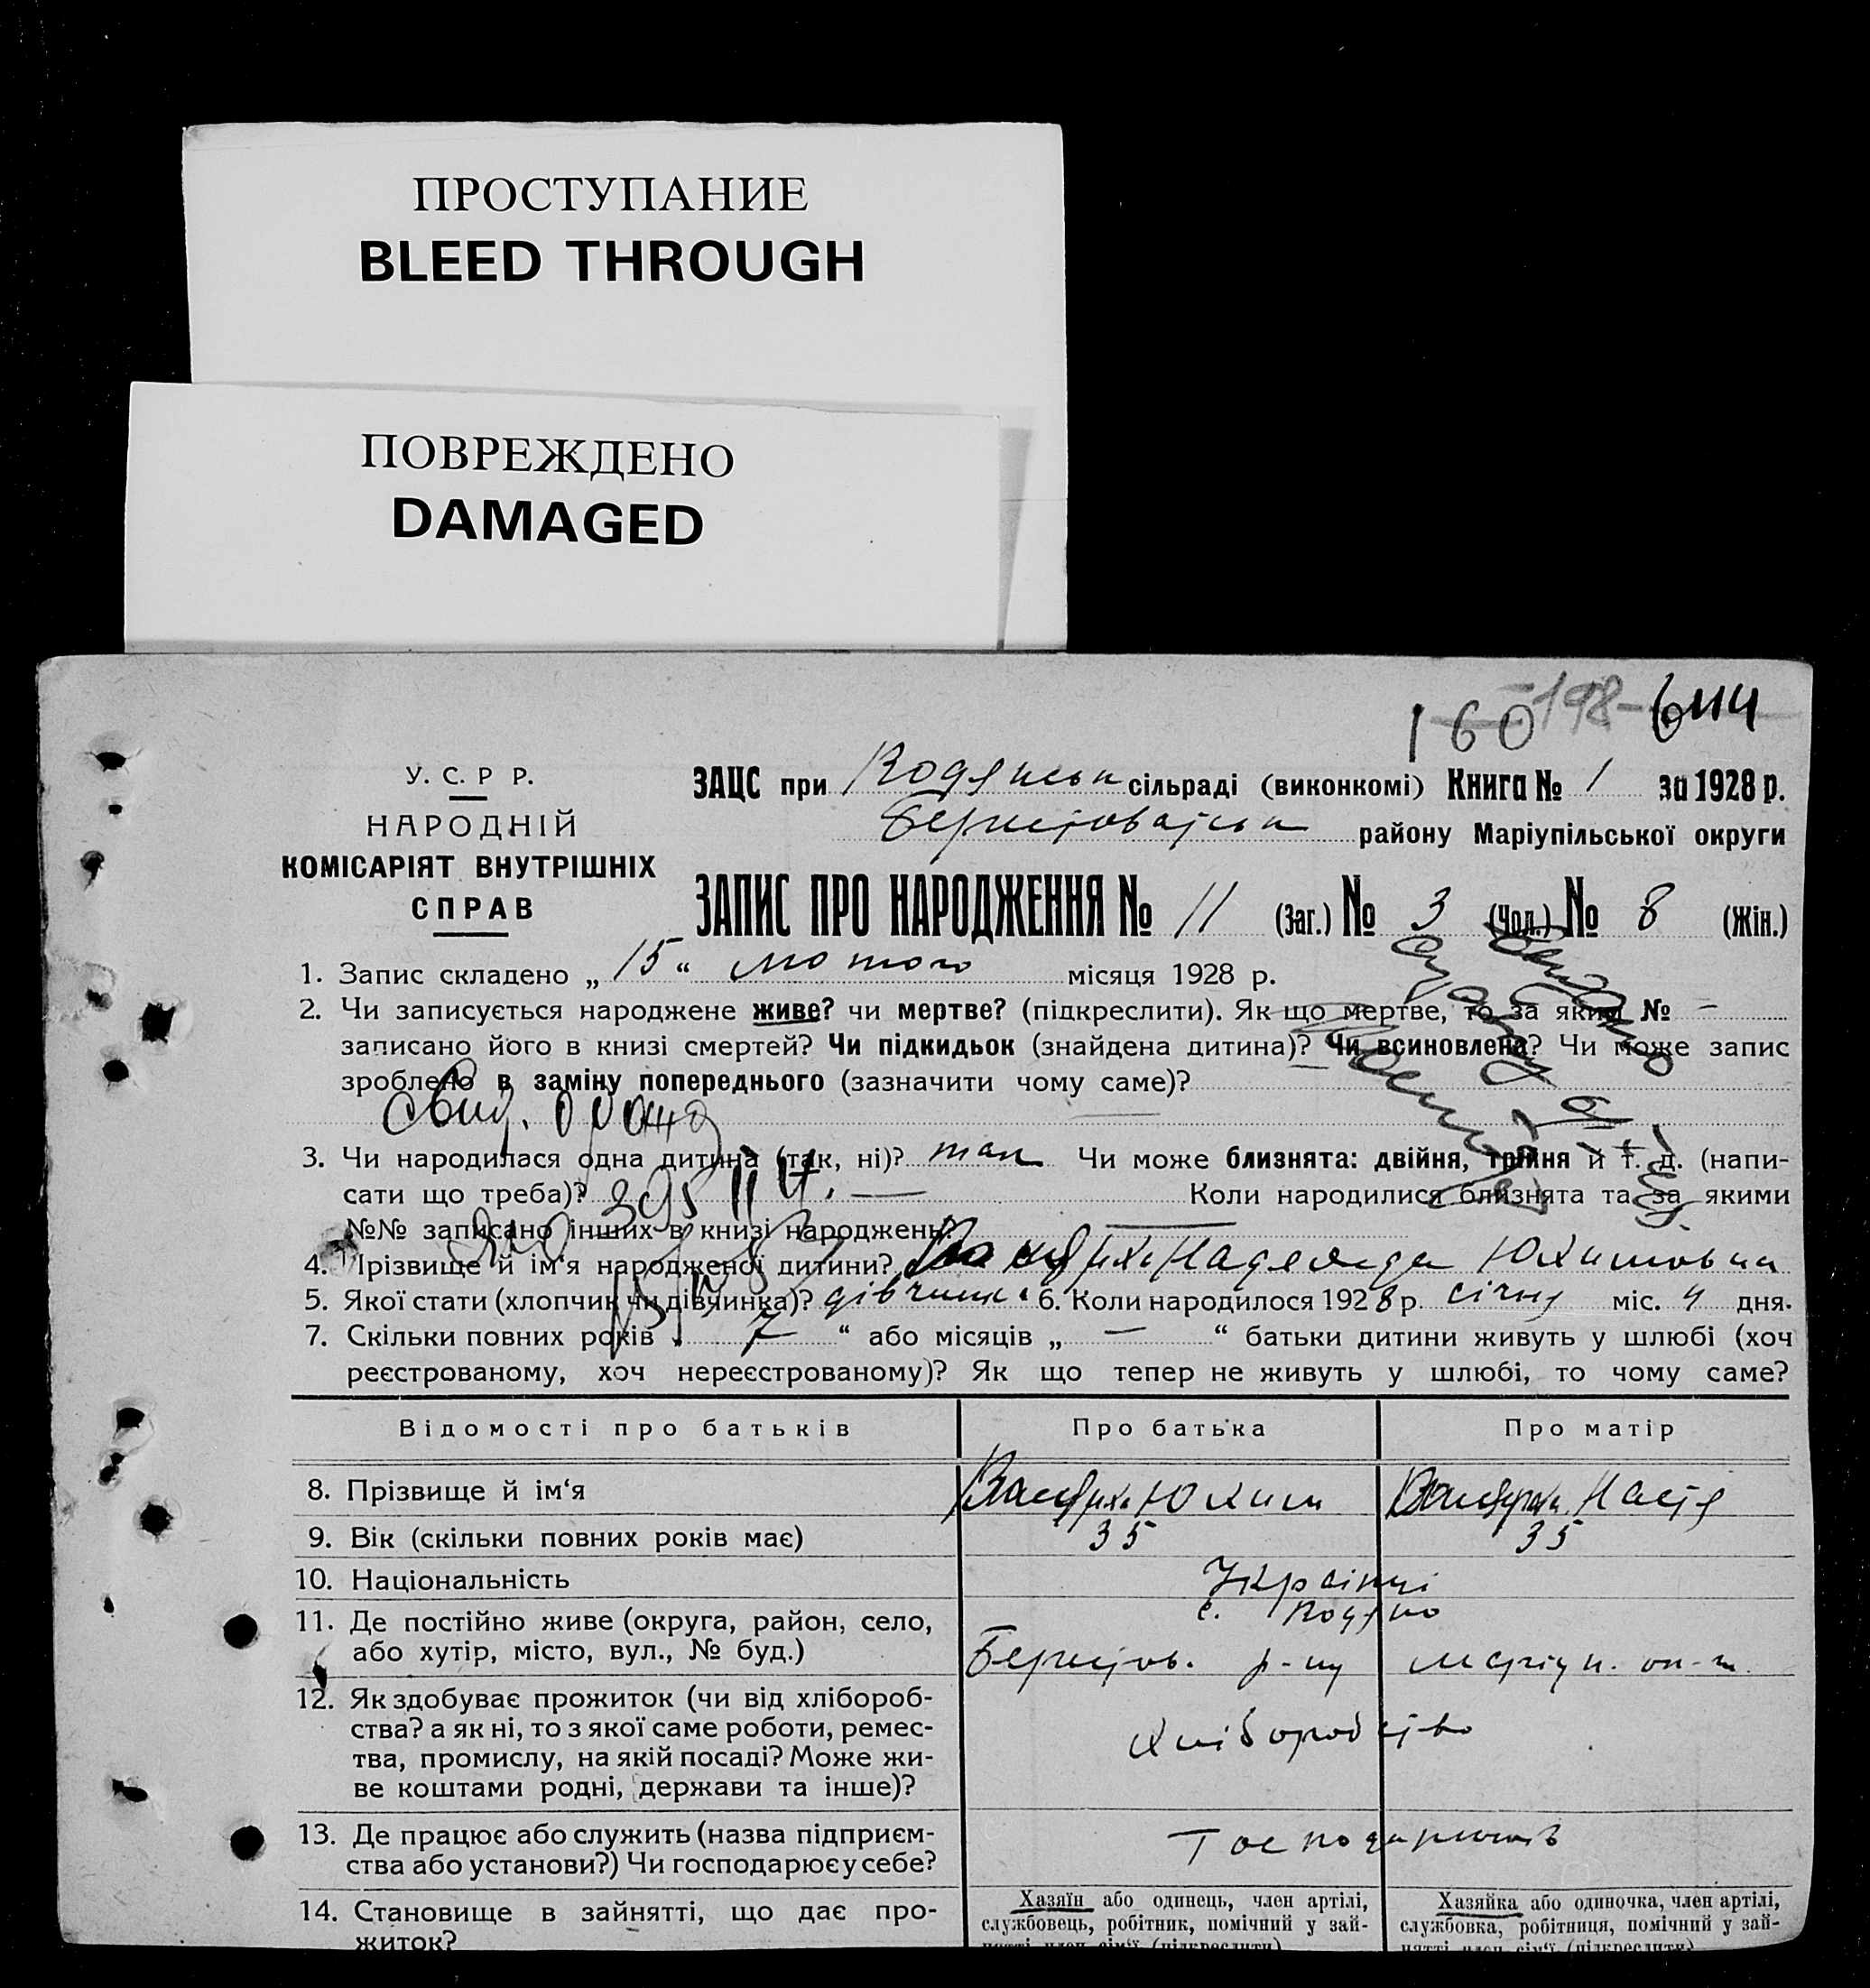 ПРОСТУПАНИЕ
BLEED THROUGH
ПОВРЕЖДЕНО
DAMAGED
160 198- 6114
У. С. Р Р.
НАРОДНІЙ
КОМІСАРІЯТ ВНУТРІШНІХ
СПРАВ
ЗАЦС при Водянськ сільраді (виконкомі) Книга № 1 за 1928 р.
району Маріупільської округи
ЗАПИС ПРО НАРОДЖЕННЯ № 11 (Заг.) № 3 (Чол.) № 8 (Жін.)
1. Запис складено „ 15 “ лютого місяця 1928 р.
2. Чи записується народжене живе? чи мертве? (підкреслити). Як що мертве, то за яким № –
записано його в книзі смертей? Чи підкидьок (знайдена дитина)? Чи всиновлена? Чи може запис
зроблено в заміну попереднього (зазначити чому саме)?
3. Чи народилася одна дитина (так, ні)? так Чи може близнята: двійня, трійня й т. д. (напи-
сати що треба)? — Коли народилися близнята та за якими
№№ записано інших в книзі народжень?
4. Прізвище й ім'я народженої дитини? Надежда Юхимовна
5. Якої стати (хлопчик чи дівчинка)? дівчинк. 6. Коли народилося 1928 р. січня міс. 4 дня.
7. Скільки повних років „ 7 “ або місяців „ — “ батьки дитини живуть у шлюбі (хоч
реєстрованому, хоч нереєстрованому)? Як що тепер не живуть у шлюбі, то чому саме?
Відомості про батьків Про батька Про матір
8. Прізвище й ім‘я Юхим Настя
9. Вік (скільки повних років має) 35 35
10. Національність Українці
11. Де постійно живе (округа, район, село, с. Водяно
або хутір, місто, вул., № буд.) р-ну Маріуп. ок-ги
12. Як здобуває прожиток (чи від хлібороб-
ства? а як ні, то з якої саме роботи, ремес- хліборобство
тва, промислу, на якій посаді? Може жи-
ве коштами родні, держави та інше)?
13. Де працює або служить (назва підприєм- Господарюють
ства або установи?) Чи господарює у себе?
14. Становище в зайнятті, що дає про- Хазяїн або одинець, член артілі, Хазяйка або одиночка, член артілі,
житок? службовець, робітник, помічний у зай- службовка, робітниця, помічний у зай-
нятті член сім'ї (підкреслити) нятті член сім'ї (підкреслити)